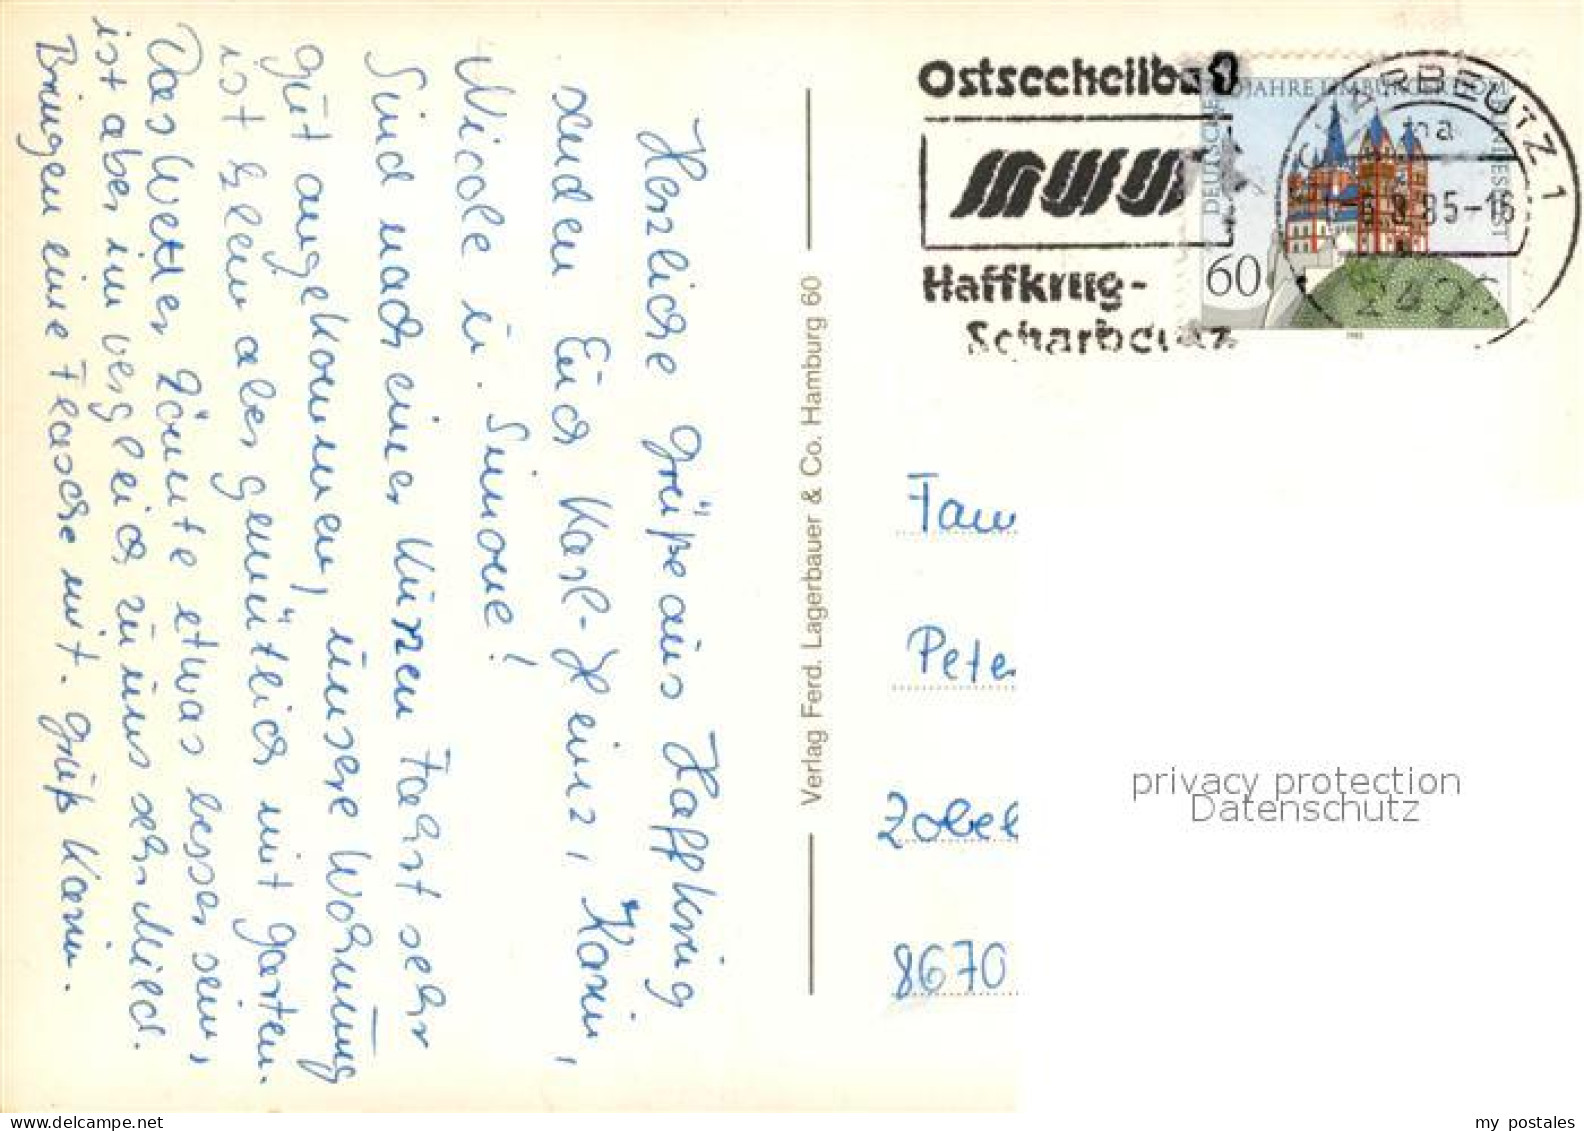 Herzliche Grüße aus Haffkrug
senden Euch Karl-Heinz, Karin,
Nicole u. Simone!
Sind nach einer kurzen Fahrt sehr
gut angekommen, unsere Wohnung
ist klein aber gemütlich mit Garten.
Das Wetter könnte etwas besser sein,
ist aber im vergleich zu uns sehr Mild.
Bringen eine Flasche mit. Gruß Karin.
Verlag Ferd. Lagerbauer & Co. Hamburg 60
Ostseeheilbad
Haffkrug-
Scharbeutz
DEUTSCHE BUNDESPOST
JAHRE LIMBURGER DOM
60
SCHARBEUTZ 1
ma
8.85-16
Fam
Pete
Zobel
8670
privacy protection
Datenschutz
my postales